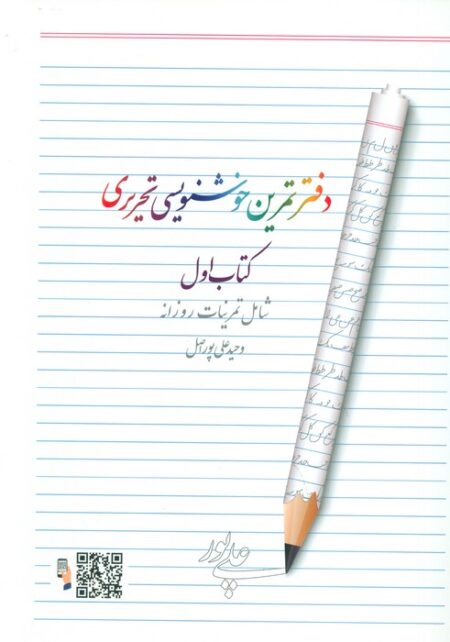 دفتر تمرین خوشنویسی تحریری
کتاب اول
شامل تمرینات روزانه
وحید علی پور اصل
علی پور